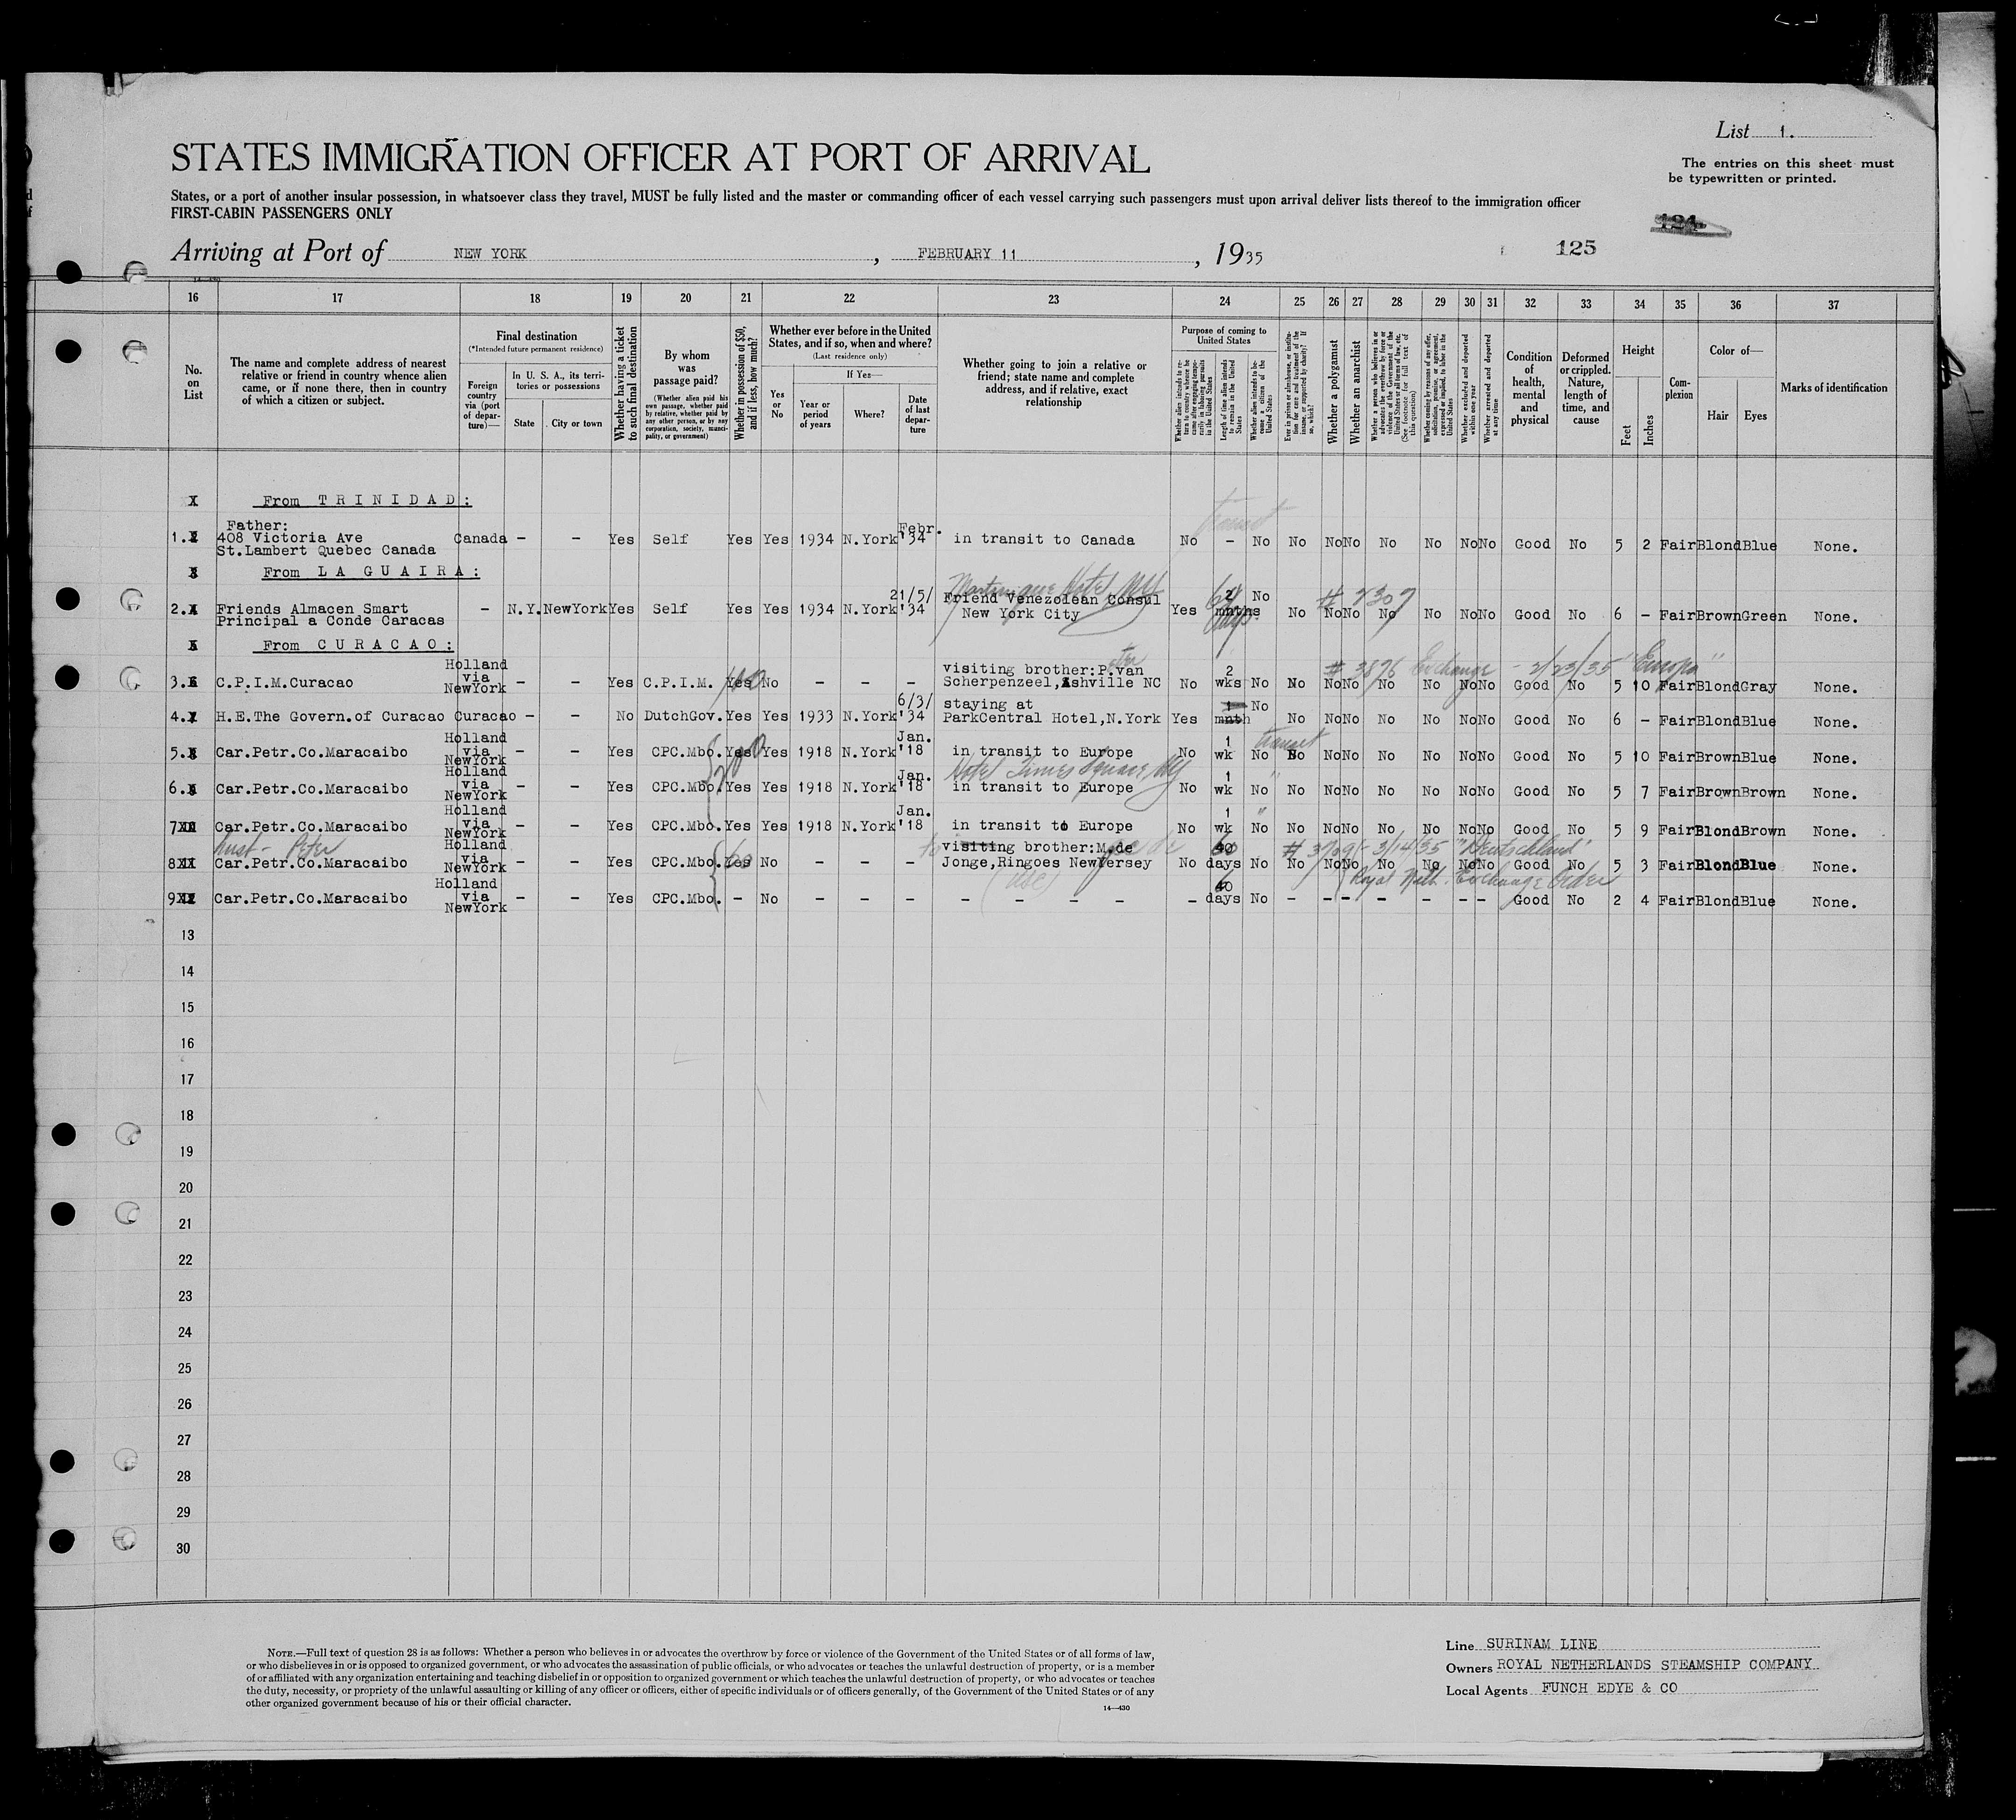 List 1.
STATES IMMIGRATION OFFICER AT PORT OF ARRIVAL
The entries on this sheet must
be typewritten or printed.
States, or a port of another insular possession, in whatsoever class they travel, MUST be fully listed and the master or commanding officer of each vessel carrying such passengers must upon arrival deliver lists thereof to the immigration officer
FIRST-CABIN PASSENGERS ONLY
124
Arriving at Port of NEW YORK, FEBRUARY 11, 1935
125
16 17 18 19 20 21 22 23 24 25 26 27 28 29 30 31 32 33 34 35 36 37
No. on List
The name and complete address of nearest
relative or friend in country whence alien
came, or if none there, then in country
of which a citizen or subject.
Final destination
(*Intended future permanent residence)
Foreign country via (port of depar-ture)—
In U. S. A., its terri-
tories or possessions
State City or town
Whether having a ticket to such final destination
By whom was passage paid?
(Whether alien paid his own passage, whether paid by relative, whether paid by any other person, or by any corporation, society, munici-pality, or government)
Whether in possession of $50, and if less, how much?
Whether ever before in the United
States, and if so, when and where?
(Last residence only)
Yes or No
If Yes—
Year or period of years
Where?
Date of last depar-ture
Whether going to join a relative or
friend; state name and complete
address, and if relative, exact
relationship
Purpose of coming to
United States
Whether alien intends to re-turn to country whence he came after engaging tempo-rarily in laboring pursuits in the United States
Length of time alien intends to remain in the United States
Whether alien intends to be-come a citizen of the United States
Ever in prison or almshouse, or institu-tion for care and treatment of the insane, or supported by charity? If so, which?
Whether a polygamist
Whether an anarchist
Whether a person who believes in or advocates the overthrow by force or violence of the Government of the United States or all forms of law, etc. (See footnote for full text of this question)
Whether coming by reasons of any offer, solicitation, promise, or agreement, expressed or implied, to labor in the United States
Whether excluded and deported within one year
Whether arrested and deported at any time
Condition of health, mental and physical
Deformed or crippled. Nature, length of time, and cause
Height
Feet Inches
Com-plexion
Color of—
Hair Eyes
Marks of identification
From TRINIDAD:
transit
Father:
Febr.
1. 408 Victoria Ave Canada - - Yes Self Yes Yes 1934 N.York '34 in transit to Canada No - No No No No No No No No Good No 5 2 Fair Blond Blue None.
St.Lambert Quebec Canada
From LA GUAIRA:
Martinique Hotel NY
21/5/
2. Friends Almacen Smart - N.Y. NewYork Yes Self Yes Yes 1934 N.York '34 Friend Venezolean Consul Yes 2 mnths No No No No No No No No Good No 6 - Fair Brown Green None.
Principal a Conde Caracas
New York City
60 days
# 7307
From CURACAO:
Holland
visiting brother:P.van
# 3876 Exchange - 2/23/35 "Europa"
3. C.P.I.M.Curacao via NewYork - - Yes C.P.I.M. Yes No - - - Scherpenzeel,Ashville NC No 2 wks No No No No No No No No Good No 5 10 Fair Blond Gray None.
6/3/
staying at
4. H.E.The Govern.of Curacao Curacao - - No DutchGov. Yes Yes 1933 N.York '34 ParkCentral Hotel,N.York Yes 1 mnth No No No No No No No No Good No 6 - Fair Blond Blue None.
Holland
Jan.
transit
5. Car.Petr.Co.Maracaibo via NewYork - - Yes CPC.Mbo. Yes Yes 1918 N.York '18 in transit to Europe No 1 wk No No No No No No No No Good No 5 10 Fair Brown Blue None.
Hotel Times Square, NY
Holland
Jan.
6. Car.Petr.Co.Maracaibo via NewYork - - Yes CPC.Mbo. Yes Yes 1918 N.York '18 in transit to Europe No 1 wk No No No No No No No No Good No 5 7 Fair Brown Brown None.
Holland
Jan.
7 Car.Petr.Co.Maracaibo via NewYork - - Yes CPC.Mbo. Yes Yes 1918 N.York '18 in transit to Europe No 1 wk No No No No No No No No Good No 5 9 Fair Blond Brown None.
Peter
Holland
visiting brother:M.de
# 3709 - 3/14/35 "Deutschland"
8 Car.Petr.Co.Maracaibo via NewYork - - Yes CPC.Mbo. Yes No - - - Jonge,Ringoes NewYersey No days No No No No No No No No Good No 5 3 Fair Blond Blue None.
Royal Neth. Exchange Order
Holland
9 Car.Petr.Co.Maracaibo via NewYork - - Yes CPC.Mbo. - No - - - - - - - - days No - - - - - - - Good No 2 4 Fair Blond Blue None.
13
14
15
16
17
18
19
20
21
22
23
24
25
26
27
28
29
30
NOTE.—Full text of question 28 is as follows: Whether a person who believes in or advocates the overthrow by force or violence of the Government of the United States or of all forms of law,
or who disbelieves in or is opposed to organized government, or who advocates the assassination of public officials, or who advocates or teaches the unlawful destruction of property, or is a member
of or affiliated with any organization entertaining and teaching disbelief in or opposition to organized government or which teaches the unlawful destruction of property, or who advocates or teaches
the duty, necessity, or propriety of the unlawful assaulting or killing of any officer or officers, either of specific individuals or of officers generally, of the Government of the United States or of any
other organized government because of his or their official character.
14—430
Line SURINAM LINE
Owners ROYAL NETHERLANDS STEAMSHIP COMPANY
Local Agents FUNCH EDYE & CO